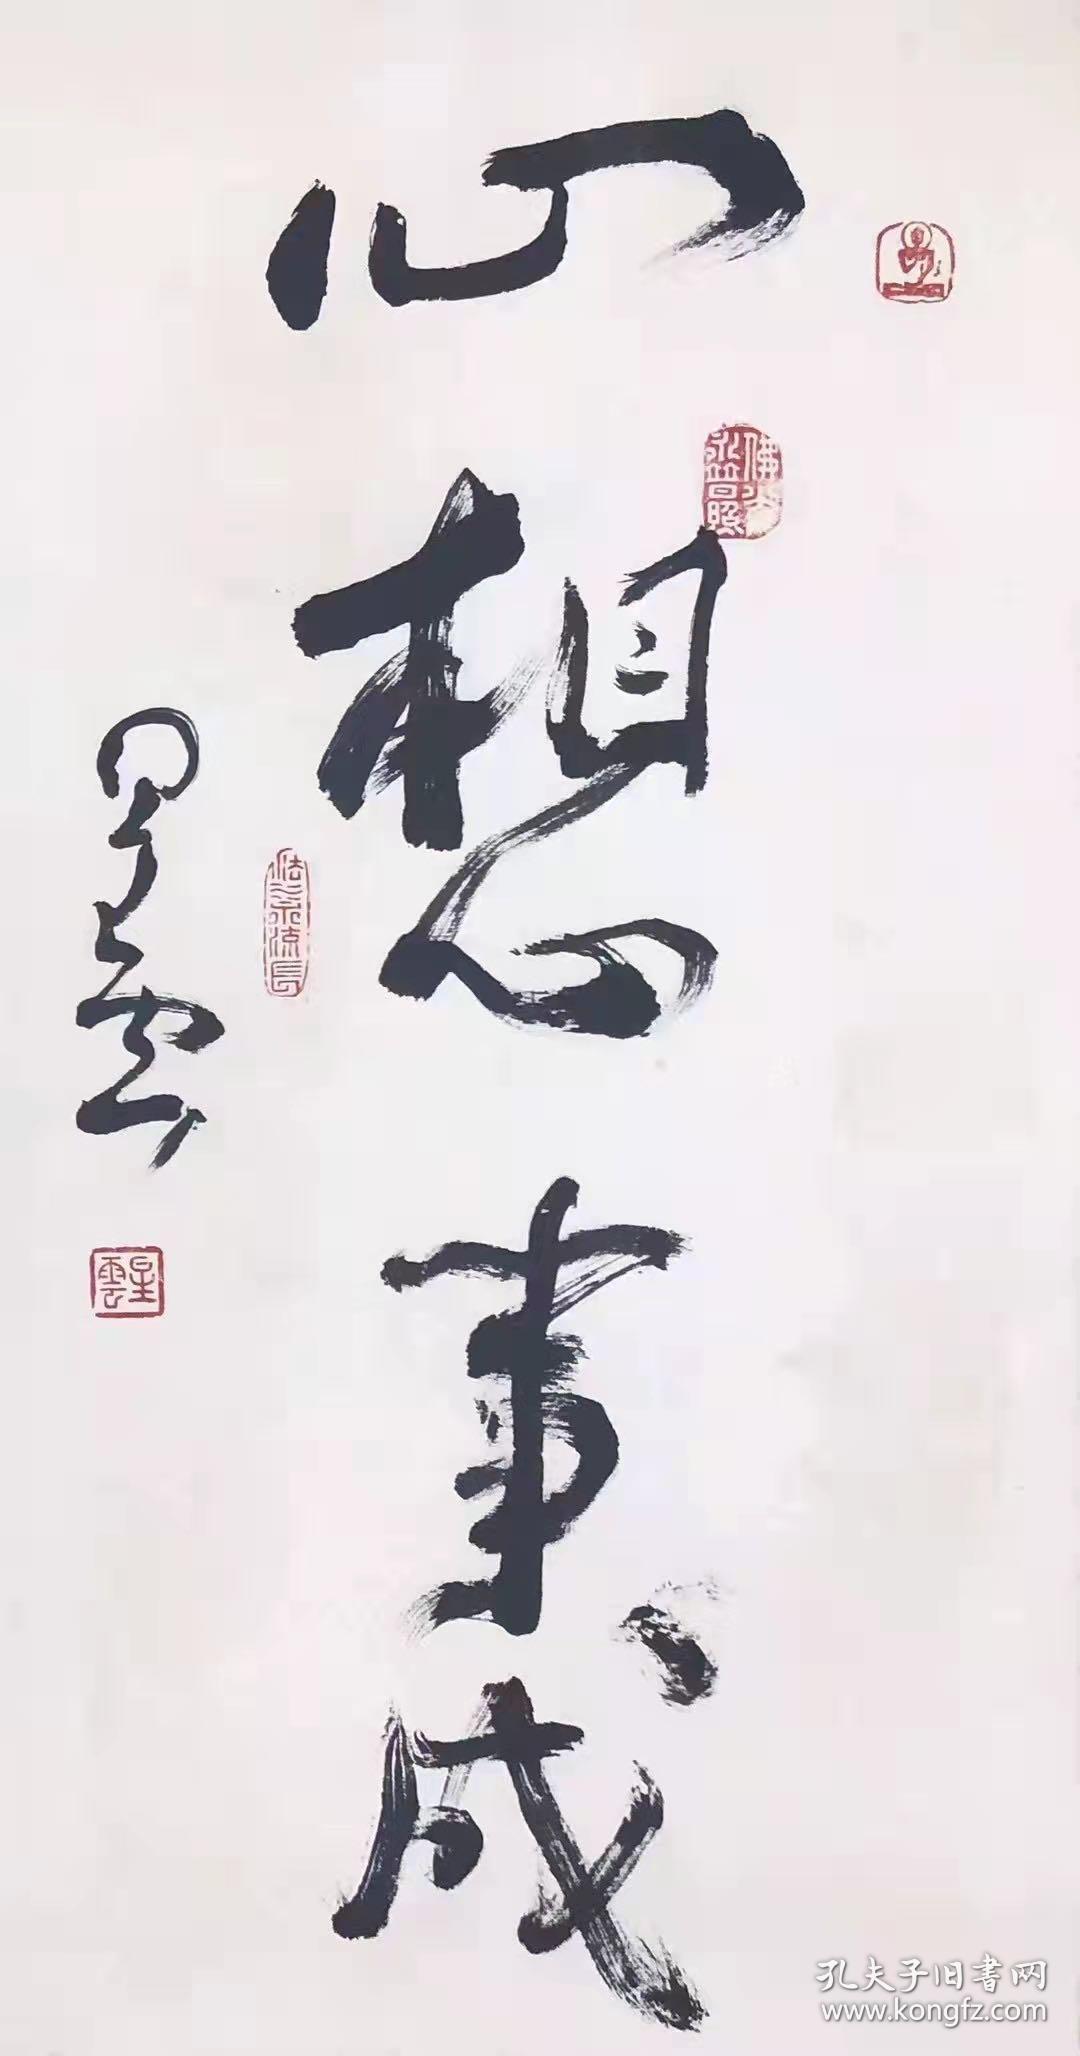 心想事成
佛光
永普照
法水流長
星雲
星雲
孔夫子旧书网
www.kongfz.com